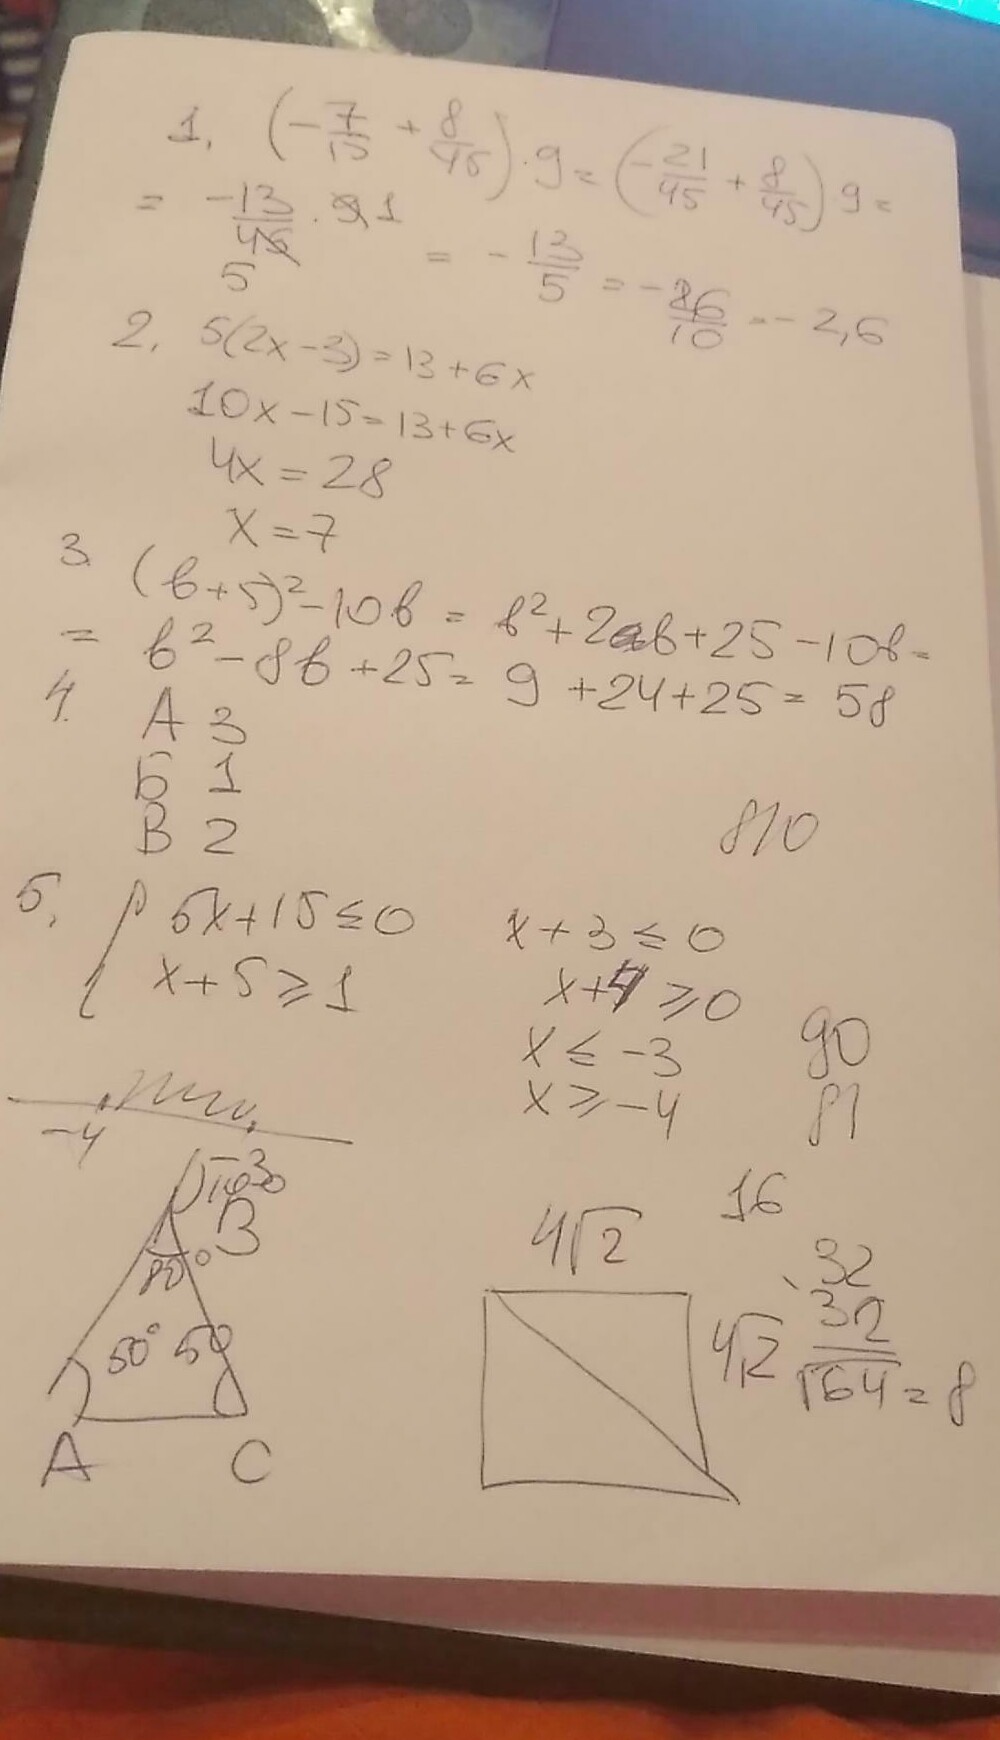 1. (-7/15 + 8/45) · 9 = (-21/45 + 8/45) 9 =
= -13/45 · 9 1
5
= - 13/5 = - 26/10 = - 2,6
2. 5(2x-3) = 13 + 6x
10x - 15 = 13 + 6x
4x = 28
x = 7
3. (b+5)² - 10b = b² + 2ab + 25 - 10b =
= b² - 8b + 25 = 9 + 24 + 25 = 58
4. А 3
Б 1
В 2
810
5. { 5x + 15 ≤ 0
x + 5 ≥ 1
x + 3 ≤ 0
x + 4 ≥ 0
x ≤ -3
x ≥ -4
90
81
-4
-3
B
80°
50° 50
A C
4√2
4√2
16
32
32
√64 = 8